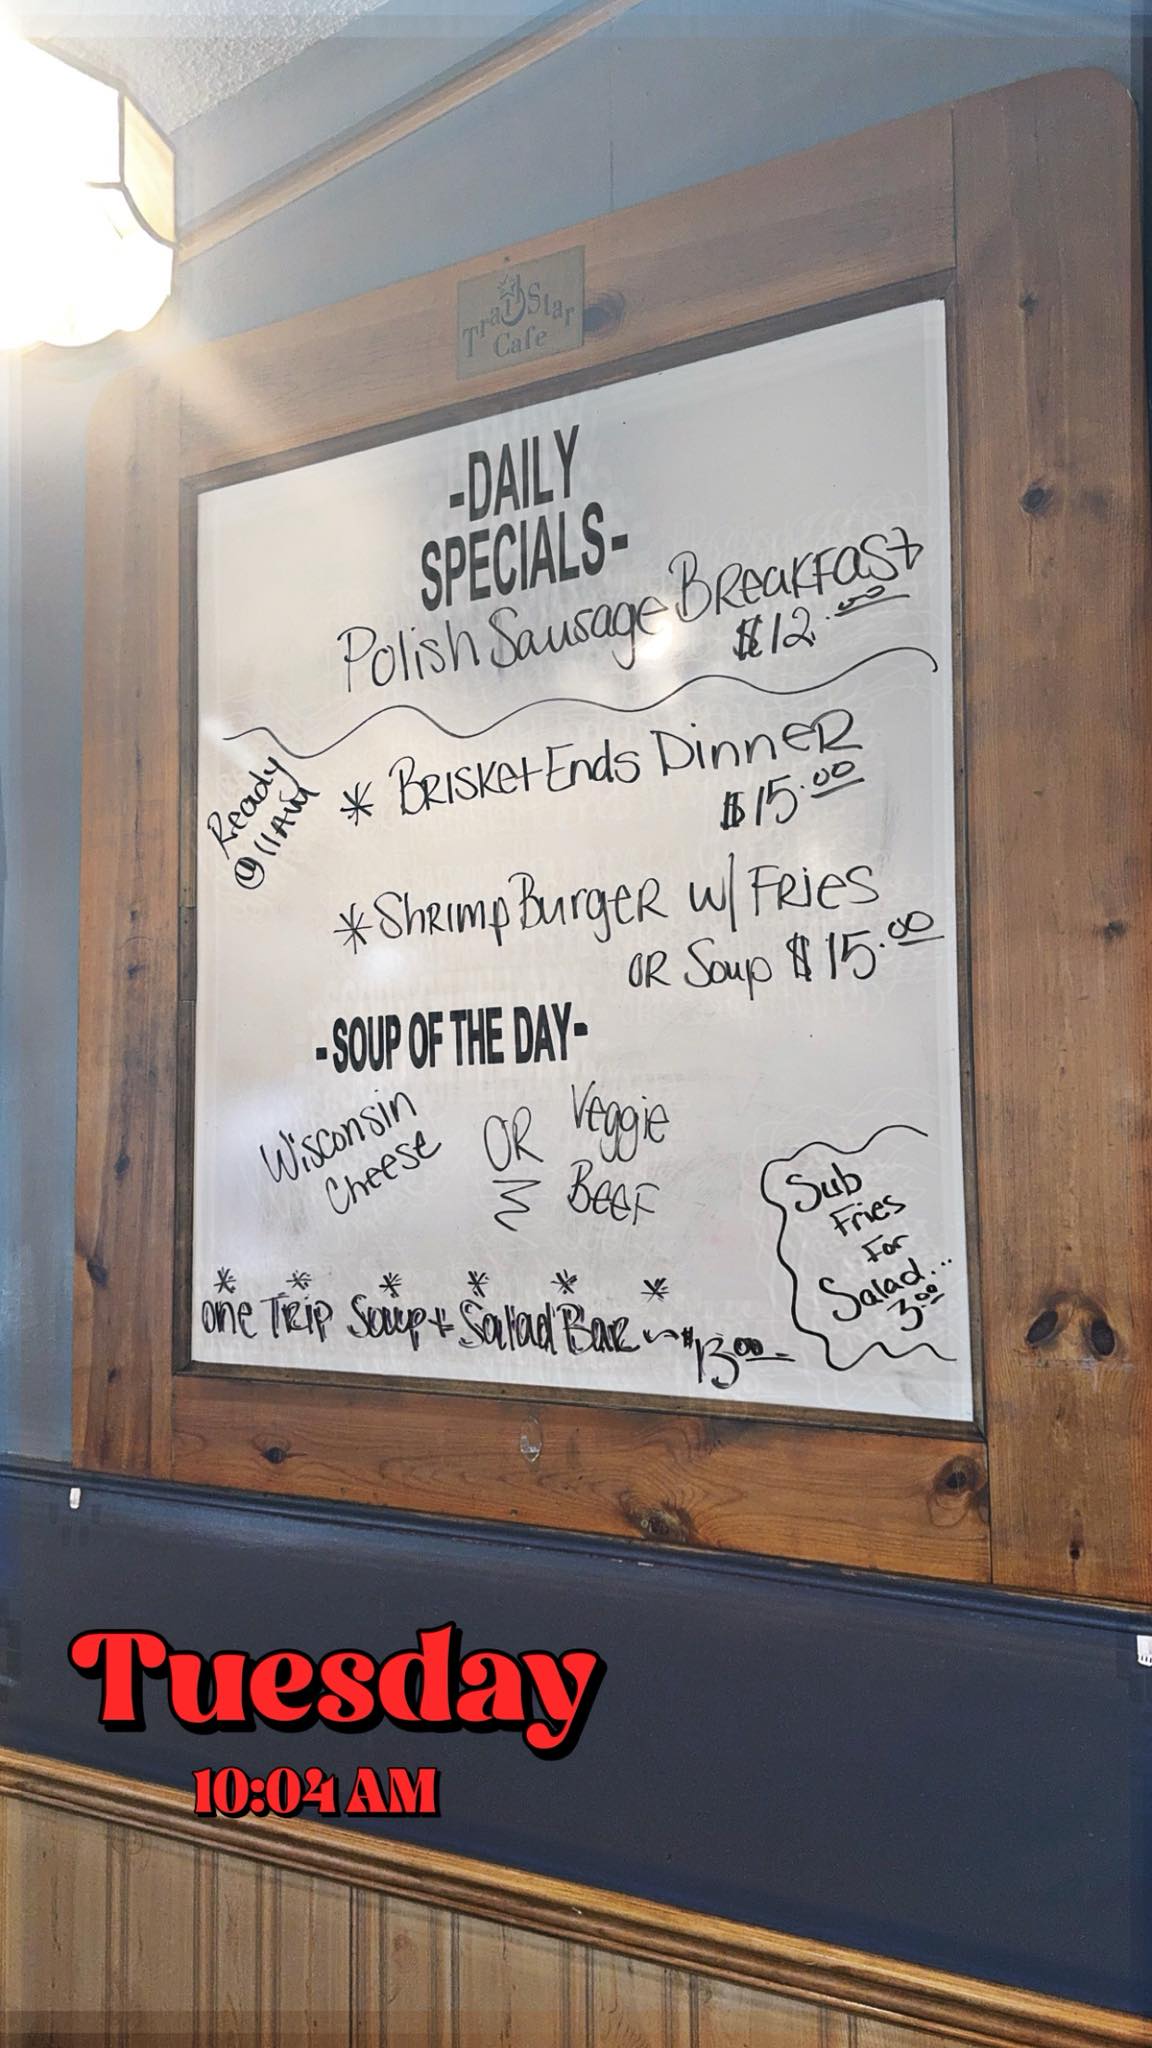 Trail Star
Cafe
-DAILY
SPECIALS-
Polish Sausage Breakfast
$12.00
Ready
@ 11AM
* Brisket Ends Dinner
$15.00
* Shrimp Burger w/ Fries
OR Soup $15.00
-SOUP OF THE DAY-
Wisconsin
Cheese
OR
Veggie
Beef
Sub
Fries
For
Salad...
3.00
* * * * * *
One Trip Soup + Salad Bar ~ $13.00
Tuesday
10:04 AM